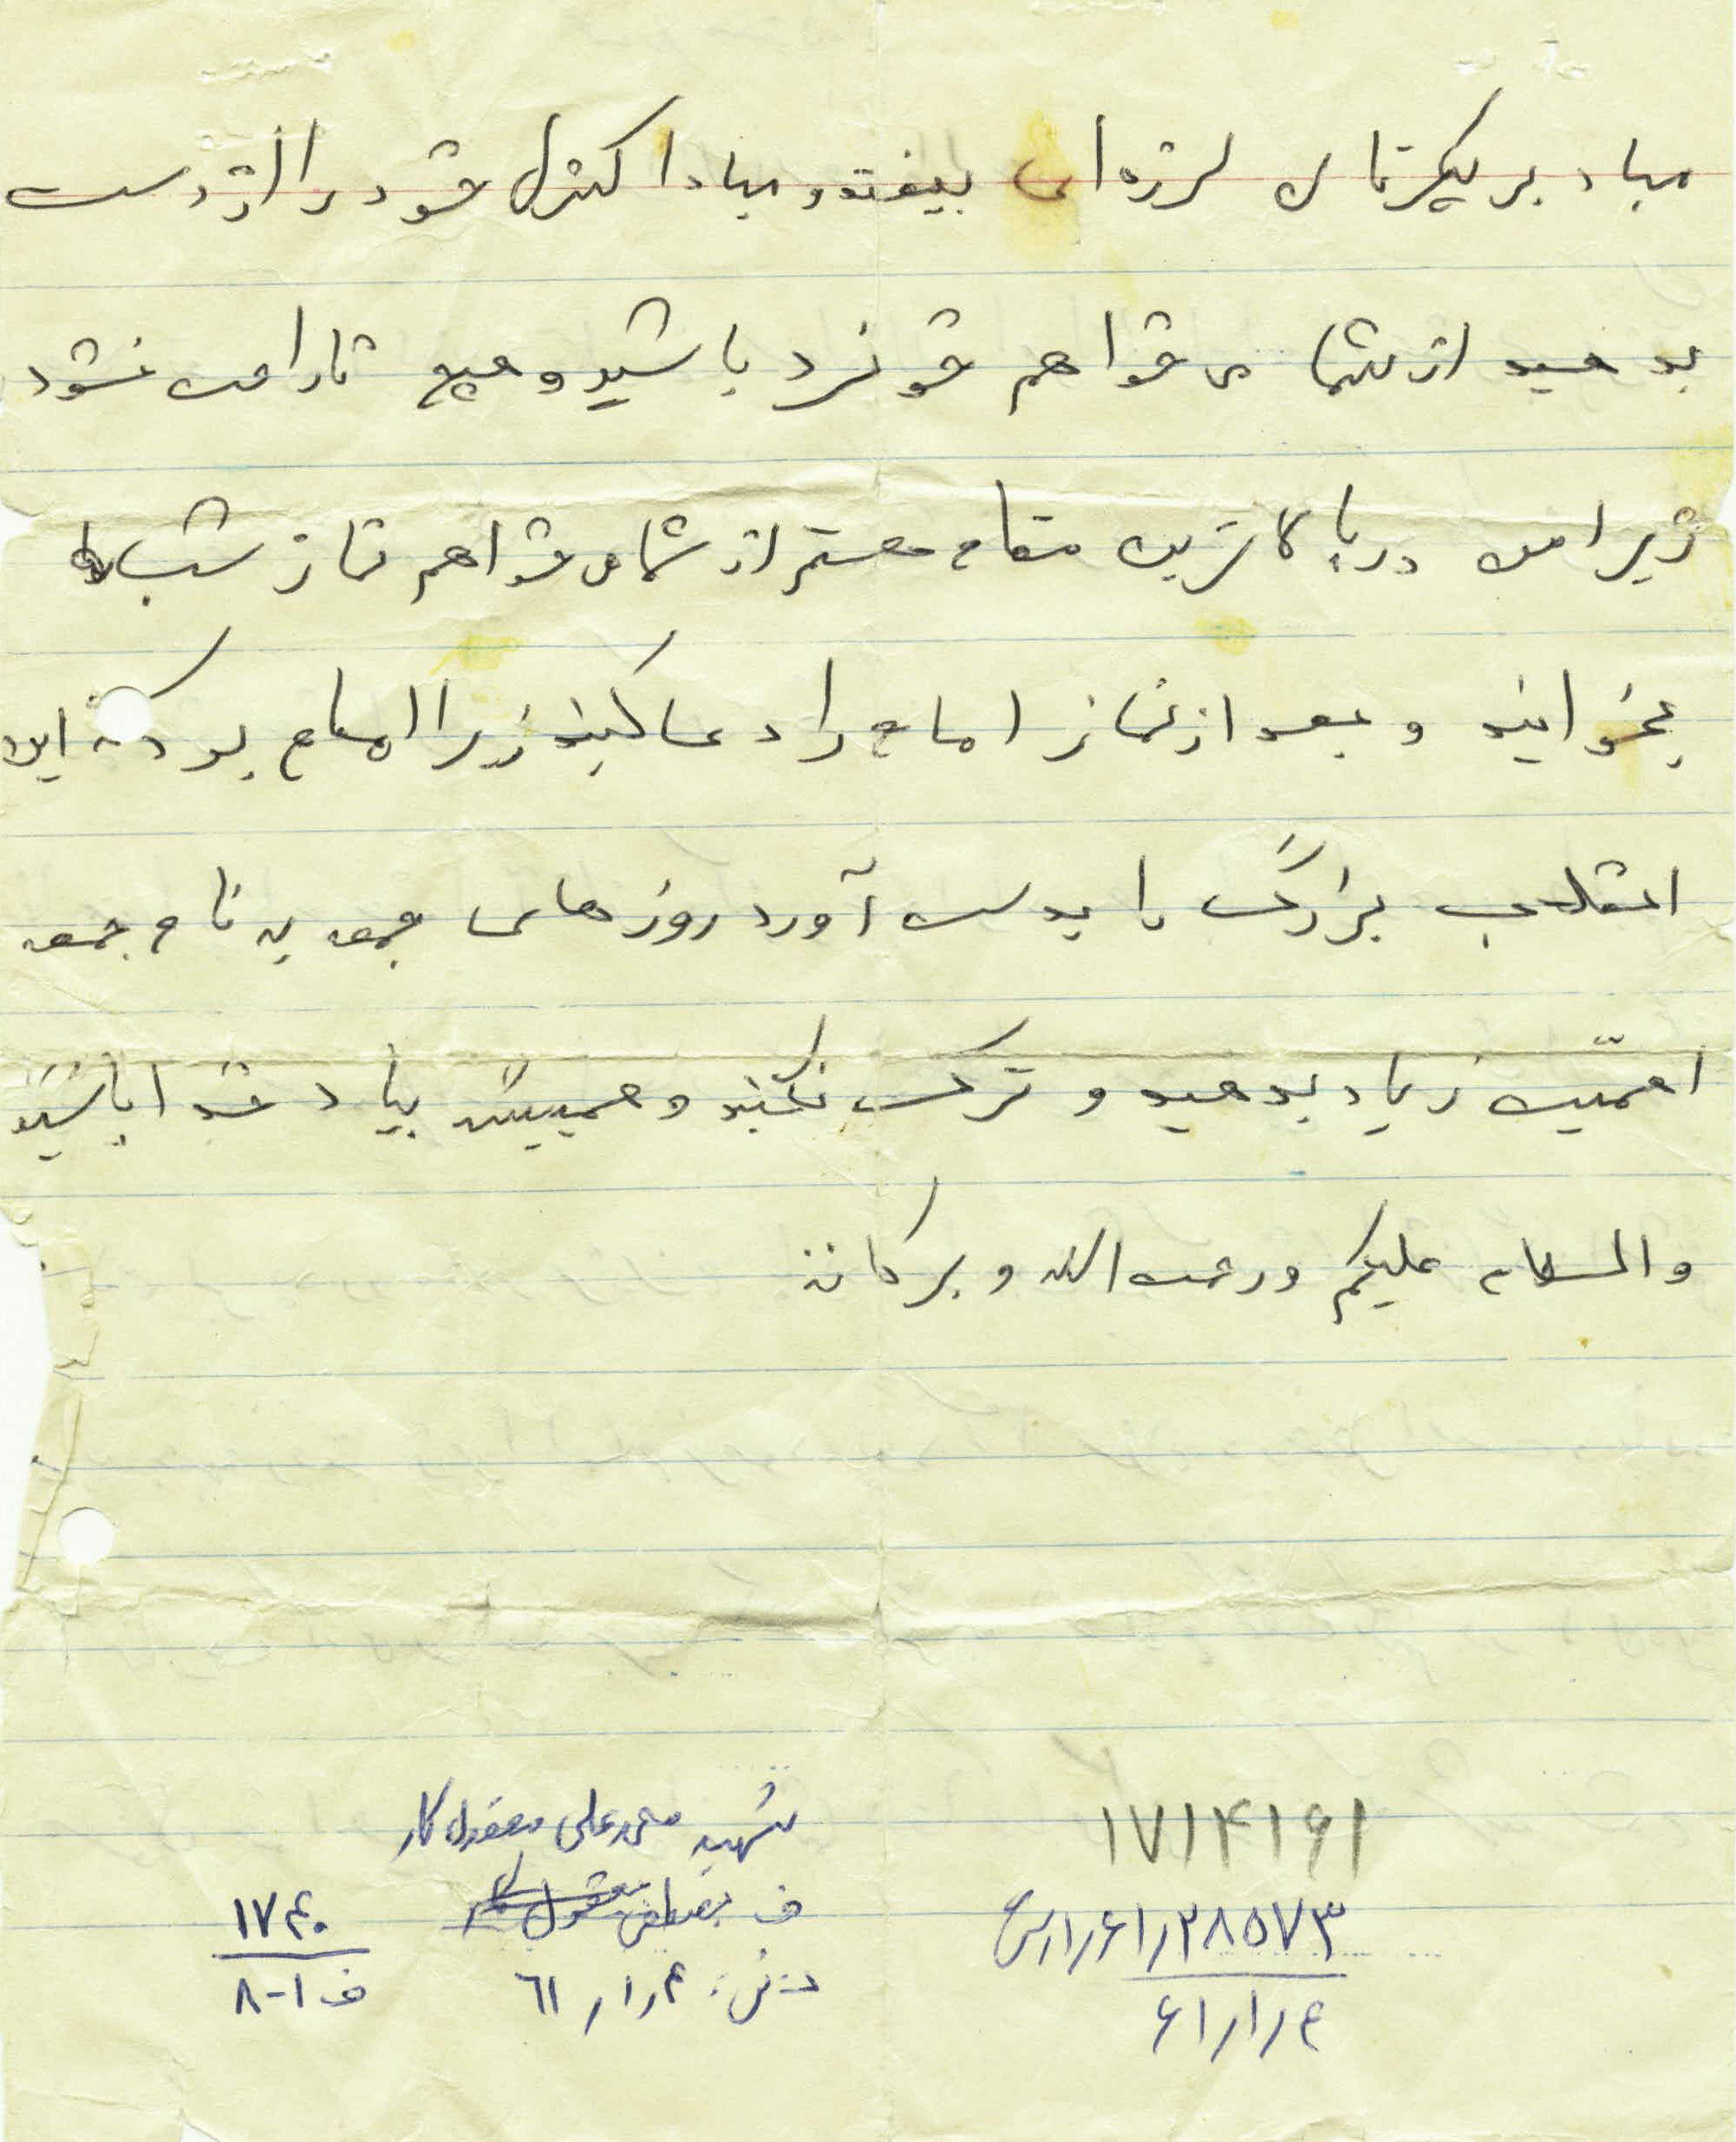 مباد بر پیکرتان لرزه‌ای بیفتد و مبادا کنترل خود را از دست
بدهید از شما می خواهم خونسرد باشید و هیچ ناراحت نشود
زیرا من در بالاترین مقام هستم از شما می خواهم نماز شب را
بخوانید و بعد از نماز امام را دعا کنید زیرا امام بود که این
انقلاب بزرگ را بدست آورد روزهای جمعه به نماز جمعه
اهمیّت زیاد بدهید و ترک نکنید و همیشه بیاد خدا باشید
والسلام علیکم ورحمت الله و برکاته
۱۷۱۴۱۶۱
شهید محمدعلی معقول کار
ف مصطفی
۲۸۵۷۳
۱۷۴۰
ف ۱-۸
ع ر۱ر ۶۱